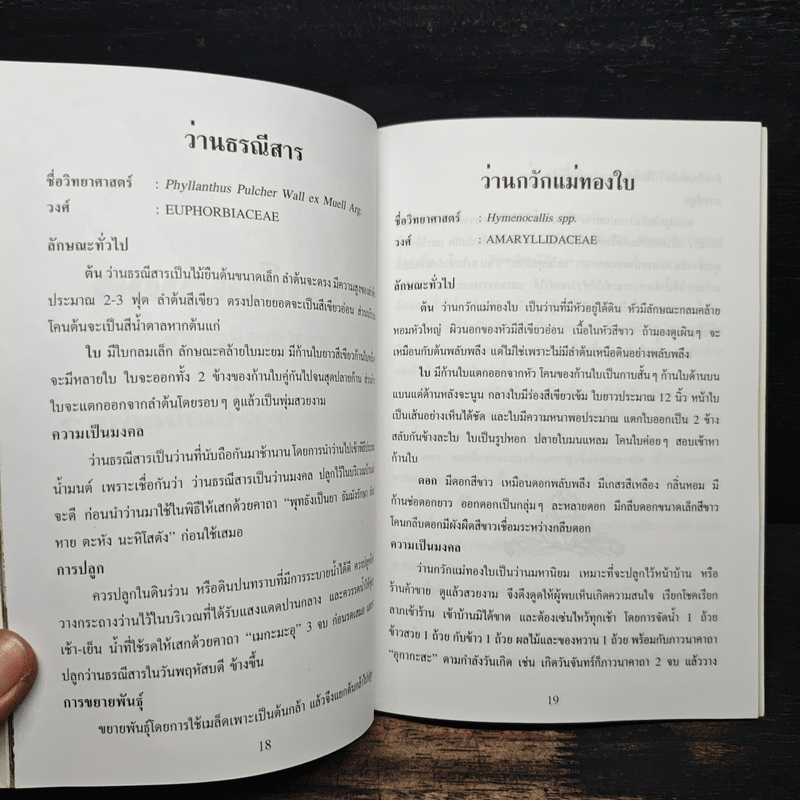 ว่านธรณีสาร
ชื่อวิทยาศาสตร์ : Phyllanthus Pulcher Wall ex Muell Arg.
วงศ์ : EUPHORBIACEAE
ลักษณะทั่วไป
ต้น ว่านธรณีสารเป็นไม้ยืนต้นขนาดเล็ก ลำต้นจะตรง มีความสูงของลำต้น
ประมาณ 2-3 ฟุต ลำต้นสีเขียว ตรงปลายยอดจะเป็นสีเขียวอ่อน ส่วนบริเวณ
โคนต้นจะเป็นสีน้ำตาลหากต้นแก่
ใบ มีใบกลมเล็ก ลักษณะคล้ายใบมะยม มีก้านใบยาวสีเขียวก้านใบหนึ่ง
จะมีหลายใบ ใบจะออกทั้ง 2 ข้างของก้านใบคู่กันไปจนสุดปลายก้าน ส่วนก้าน
ใบจะแตกออกจากลำต้นโดยรอบๆ ดูแล้วเป็นพุ่มสวยงาม
ความเป็นมงคล
ว่านธรณีสารเป็นว่านที่นับถือกันมาช้านาน โดยการนำว่านไปเข้าพิธีประพรม
น้ำมนต์ เพราะเชื่อกันว่า ว่านธรณีสารเป็นว่านมงคล ปลูกไว้ในบริเวณบ้าน
จะดี ก่อนนำว่านมาใช้ในพิธีให้เสกด้วยคาถา “พุทธังเป็นยา ธัมมังรักษา
หาย ตะหัง นะหิโสตัง” ก่อนใช้เสมอ
การปลูก
ควรปลูกในดินร่วน หรือดินปนทรายที่มีการระบายน้ำได้ดี ควรปลูก
วางกระถางว่านไว้ในบริเวณที่ได้รับแสงแดดปานกลาง และควรรดน้ำให้
เช้า-เย็น น้ำที่ใช้รดให้เสกด้วยคาถา “เมกะมะอุ” 3 จบ ก่อนรดเสมอ และ
ปลูกว่านธรณีสารในวันพฤหัสบดี ข้างขึ้น
การขยายพันธุ์
ขยายพันธุ์โดยการใช้เมล็ดเพาะเป็นต้นกล้า แล้วจึงแยกต้นกล้าไปปลูก
18
ว่านกวักแม่ทองใบ
ชื่อวิทยาศาสตร์ : Hymenocallis spp.
วงศ์ : AMARYLLIDACEAE
ลักษณะทั่วไป
ต้น ว่านกวักแม่ทองใบ เป็นว่านที่มีหัวอยู่ใต้ดิน หัวมีลักษณะกลมคล้าย
หอมหัวใหญ่ ผิวนอกของหัวมีสีเขียวอ่อน เนื้อในหัวสีขาว ถ้ามองดูเผินๆ จะ
เหมือนกับต้นพลับพลึง แต่ไม่ใช่เพราะไม่มีลำต้นเหนือดินอย่างพลับพลึง
ใบ มีก้านใบแตกออกจากหัว โคนของก้านใบเป็นกาบสั้นๆ ก้านใบด้านบน
แบนแต่ด้านหลังจะนูน กลางใบมีร่องสีเขียวเข้ม ใบยาวประมาณ 12 นิ้ว หน้าใบ
เป็นเส้นอย่างเห็นได้ชัด และใบมีความหนาพอประมาณ แตกใบออกเป็น 2 ข้าง
สลับกันข้างละใบ ใบเป็นรูปหอก ปลายใบมนแหลม โคนใบค่อยๆ สอบเข้าหา
ก้านใบ
ดอก มีดอกสีขาว เหมือนดอกพลับพลึง มีเกสรสีเหลือง กลิ่นหอม มี
ก้านช่อดอกยาว ออกดอกเป็นกลุ่มๆ ละหลายดอก มีกลีบดอกขนาดเล็กสีขาว
โคนกลีบดอกมีผังผืดสีขาวเชื่อมระหว่างกลีบดอก
ความเป็นมงคล
ว่านกวักแม่ทองใบเป็นว่านมหานิยม เหมาะที่จะปลูกไว้หน้าบ้าน หรือ
ร้านค้าขาย ดูแล้วสวยงาม จึงดึงดูดให้ผู้พบเห็นเกิดความสนใจ เรียกโชคเรียก
ลาภเข้าร้าน เข้าบ้านมิได้ขาด และต้องเซ่นไหว้ทุกเช้า โดยการจัดน้ำ 1 ถ้วย
ข้าวสวย 1 ถ้วย กับข้าว 1 ถ้วย ผลไม้และของหวาน 1 ถ้วย พร้อมกับภาวนาคาถา
“อุกากะสะ” ตามกำลังวันเกิด เช่น เกิดวันจันทร์ก็ภาวนาคาถา 2 จบ แล้ววาง
19